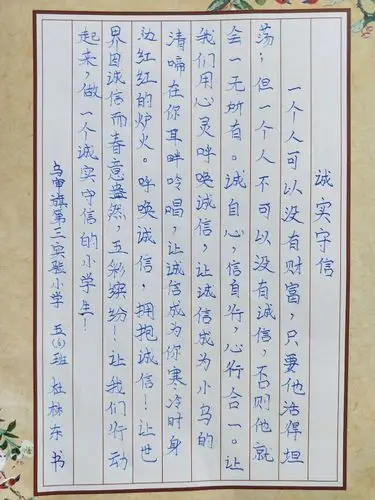 诚实守信
一个人可以没有财富，只要他活得坦
荡；但一个人不可以没有诚信，否则他就
会一无所有。诚自心，信自行，心行合一。让
我们用心灵呼唤诚信，让诚信成为小鸟的
清啼在你耳畔吟唱，让诚信成为你寒冷时身
边红红的炉火。呼唤诚信，拥抱诚信！让世
界因诚信而春意盎然，五彩缤纷！让我们行动
起来，做一个诚实守信的小学生！
乌审旗第三实验小学 五(6)班 杜林东 书